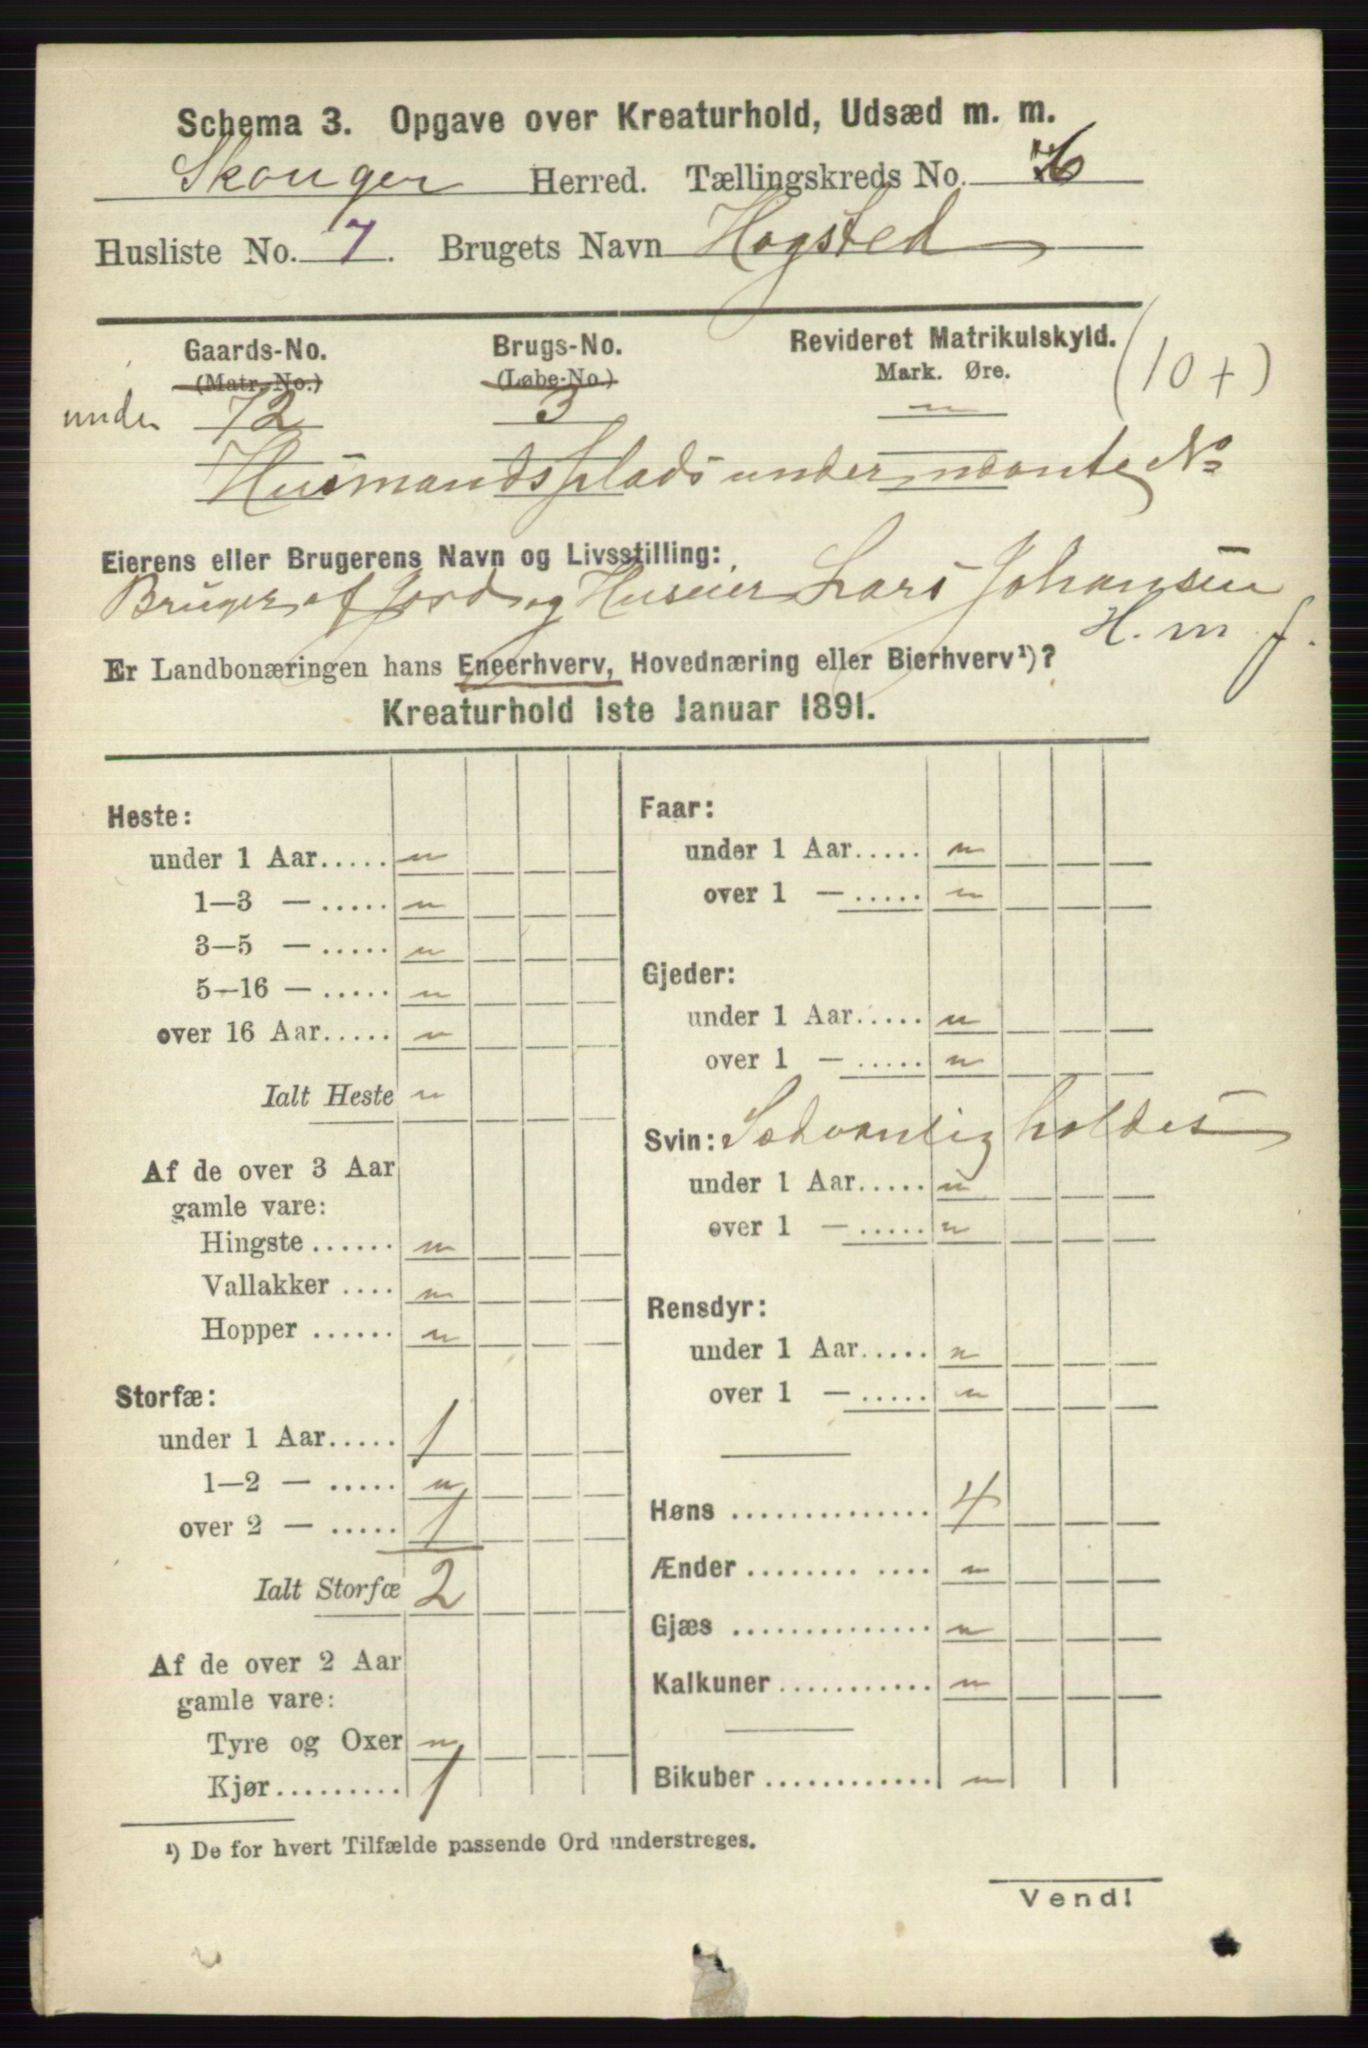 Schema 3. Opgave over Kreaturhold, Udsæd m. m.
Skouger Herred. Tællingskreds No. 6
Husliste No. 7. Brugets Navn Hogsted
Gaards-No. Brugs-No. Revideret Matrikulskyld.
(Matr.-No.) (Løbe-No.) Mark. Øre. (10 +)
under 72 3 "
Husmandsplads under nævnte No
Eierens eller Brugerens Navn og Livsstilling:
Bruger af Jord og Huseier Lars Johansen
H. m. j.
Er Landbonæringen hans Eneerhverv, Hovednæring eller Bierhverv¹)?
Kreaturhold 1ste Januar 1891.
Heste:
under 1 Aar..... "
1—3 — ..... "
3—5 — ..... "
5—16 — ..... "
over 16 Aar..... "
Ialt Heste "
Af de over 3 Aar
gamle vare:
Hingste ...... "
Vallakker .... "
Hopper ...... "
Storfæ:
under 1 Aar..... 1
1—2 — ..... "
over 2 — ..... 1
Ialt Storfæ 2
Af de over 2 Aar
gamle vare:
Tyre og Oxer "
Kjør......... 1
Faar:
under 1 Aar..... "
over 1 — ..... "
Gjeder:
under 1 Aar..... "
over 1 — ..... "
Svin: Sædvanlig holdes
under 1 Aar..... "
over 1 — ..... "
Rensdyr:
under 1 Aar..... "
over 1 — ..... "
Høns .............. 4
Ænder ........ .... "
Gjæs .............. "
Kalkuner ........... "
Bikuber ............ "
¹) De for hvert Tilfælde passende Ord understreges.
Vend!